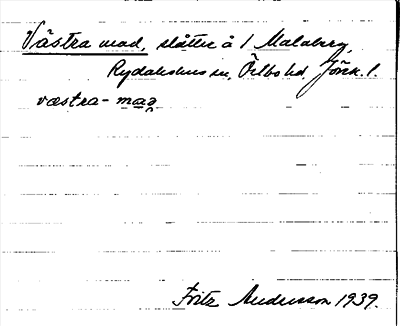 Västra mad, slåtter å 1 Malaberg,
Rydaholms sn, Östbo hd, Jönk. l.
västra-
Fritz Andersson 1939.